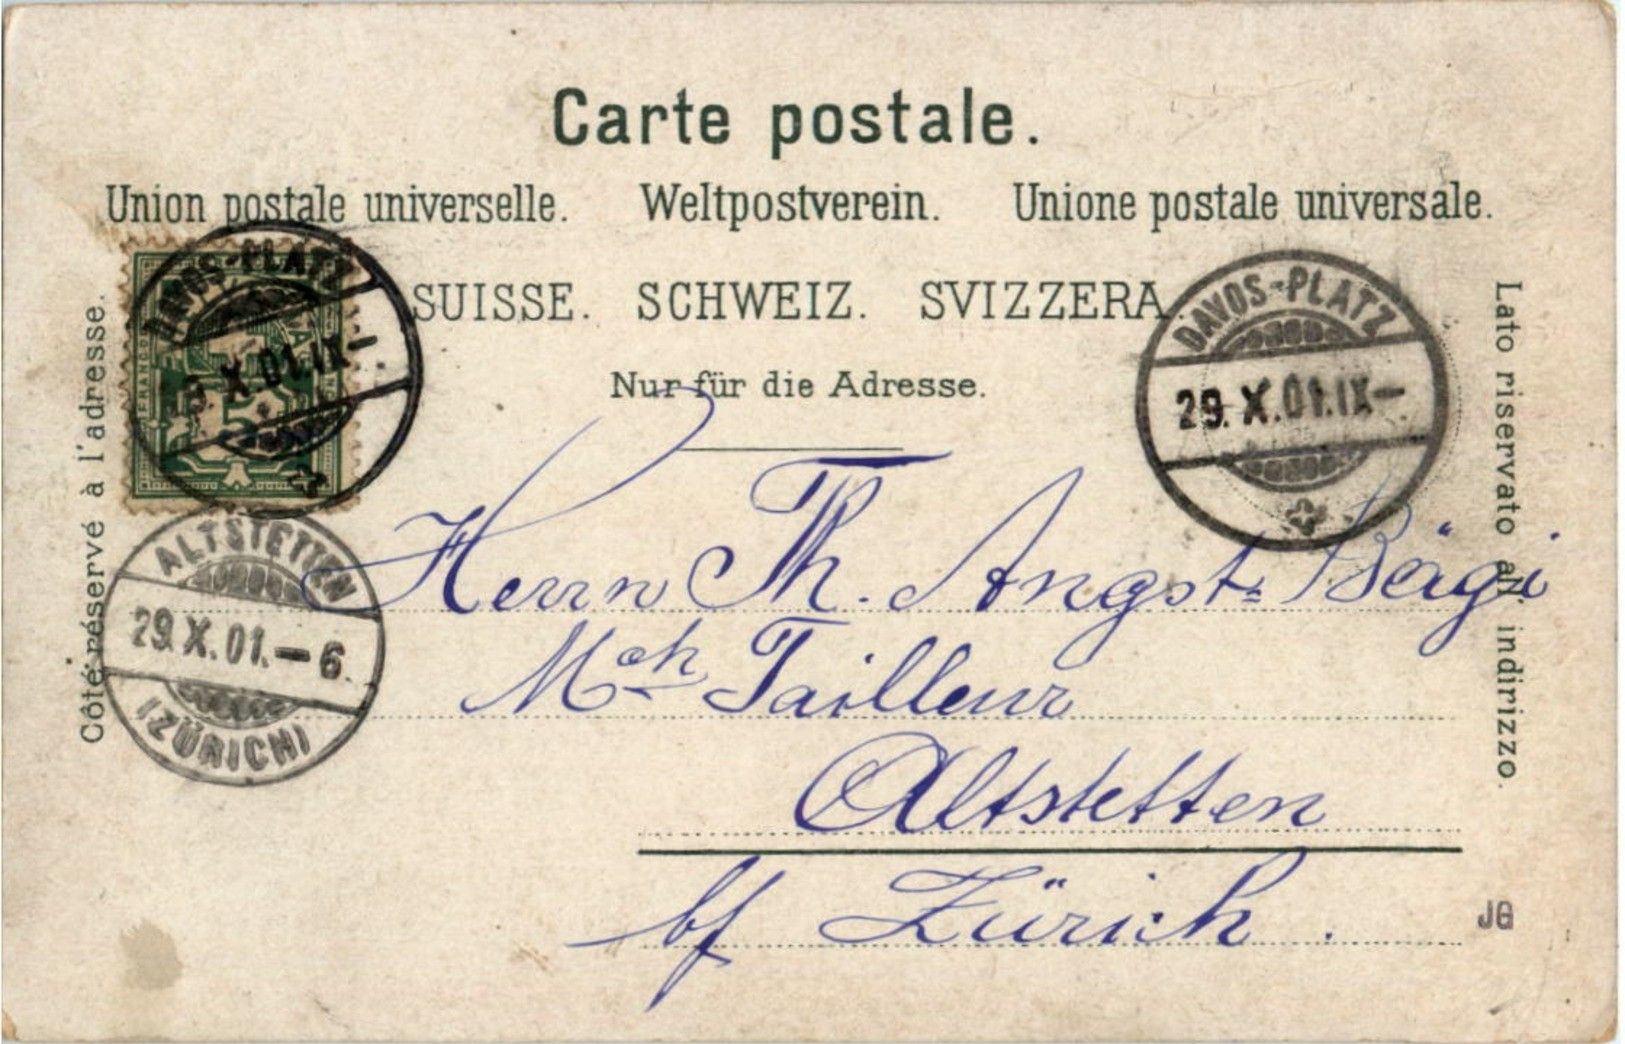 Carte postale.
Union postale universelle. Weltpostverein. Unione postale universale.
SUISSE. SCHWEIZ. SVIZZERA
Nur für die Adresse.
Côté réservé à l'adresse.
Lato riservato all' indirizzo.
DAVOS-PLATZ
29.X.01.IX-
FRANCO
5
DAVOS-PLATZ
29.X.01.IX-
ALTSTETTEN
29.X.01.-6
(ZÜRICH)
Herrn Th. Angst-
Mch Tailleur
Altstetten
b/ Zürich.
JG